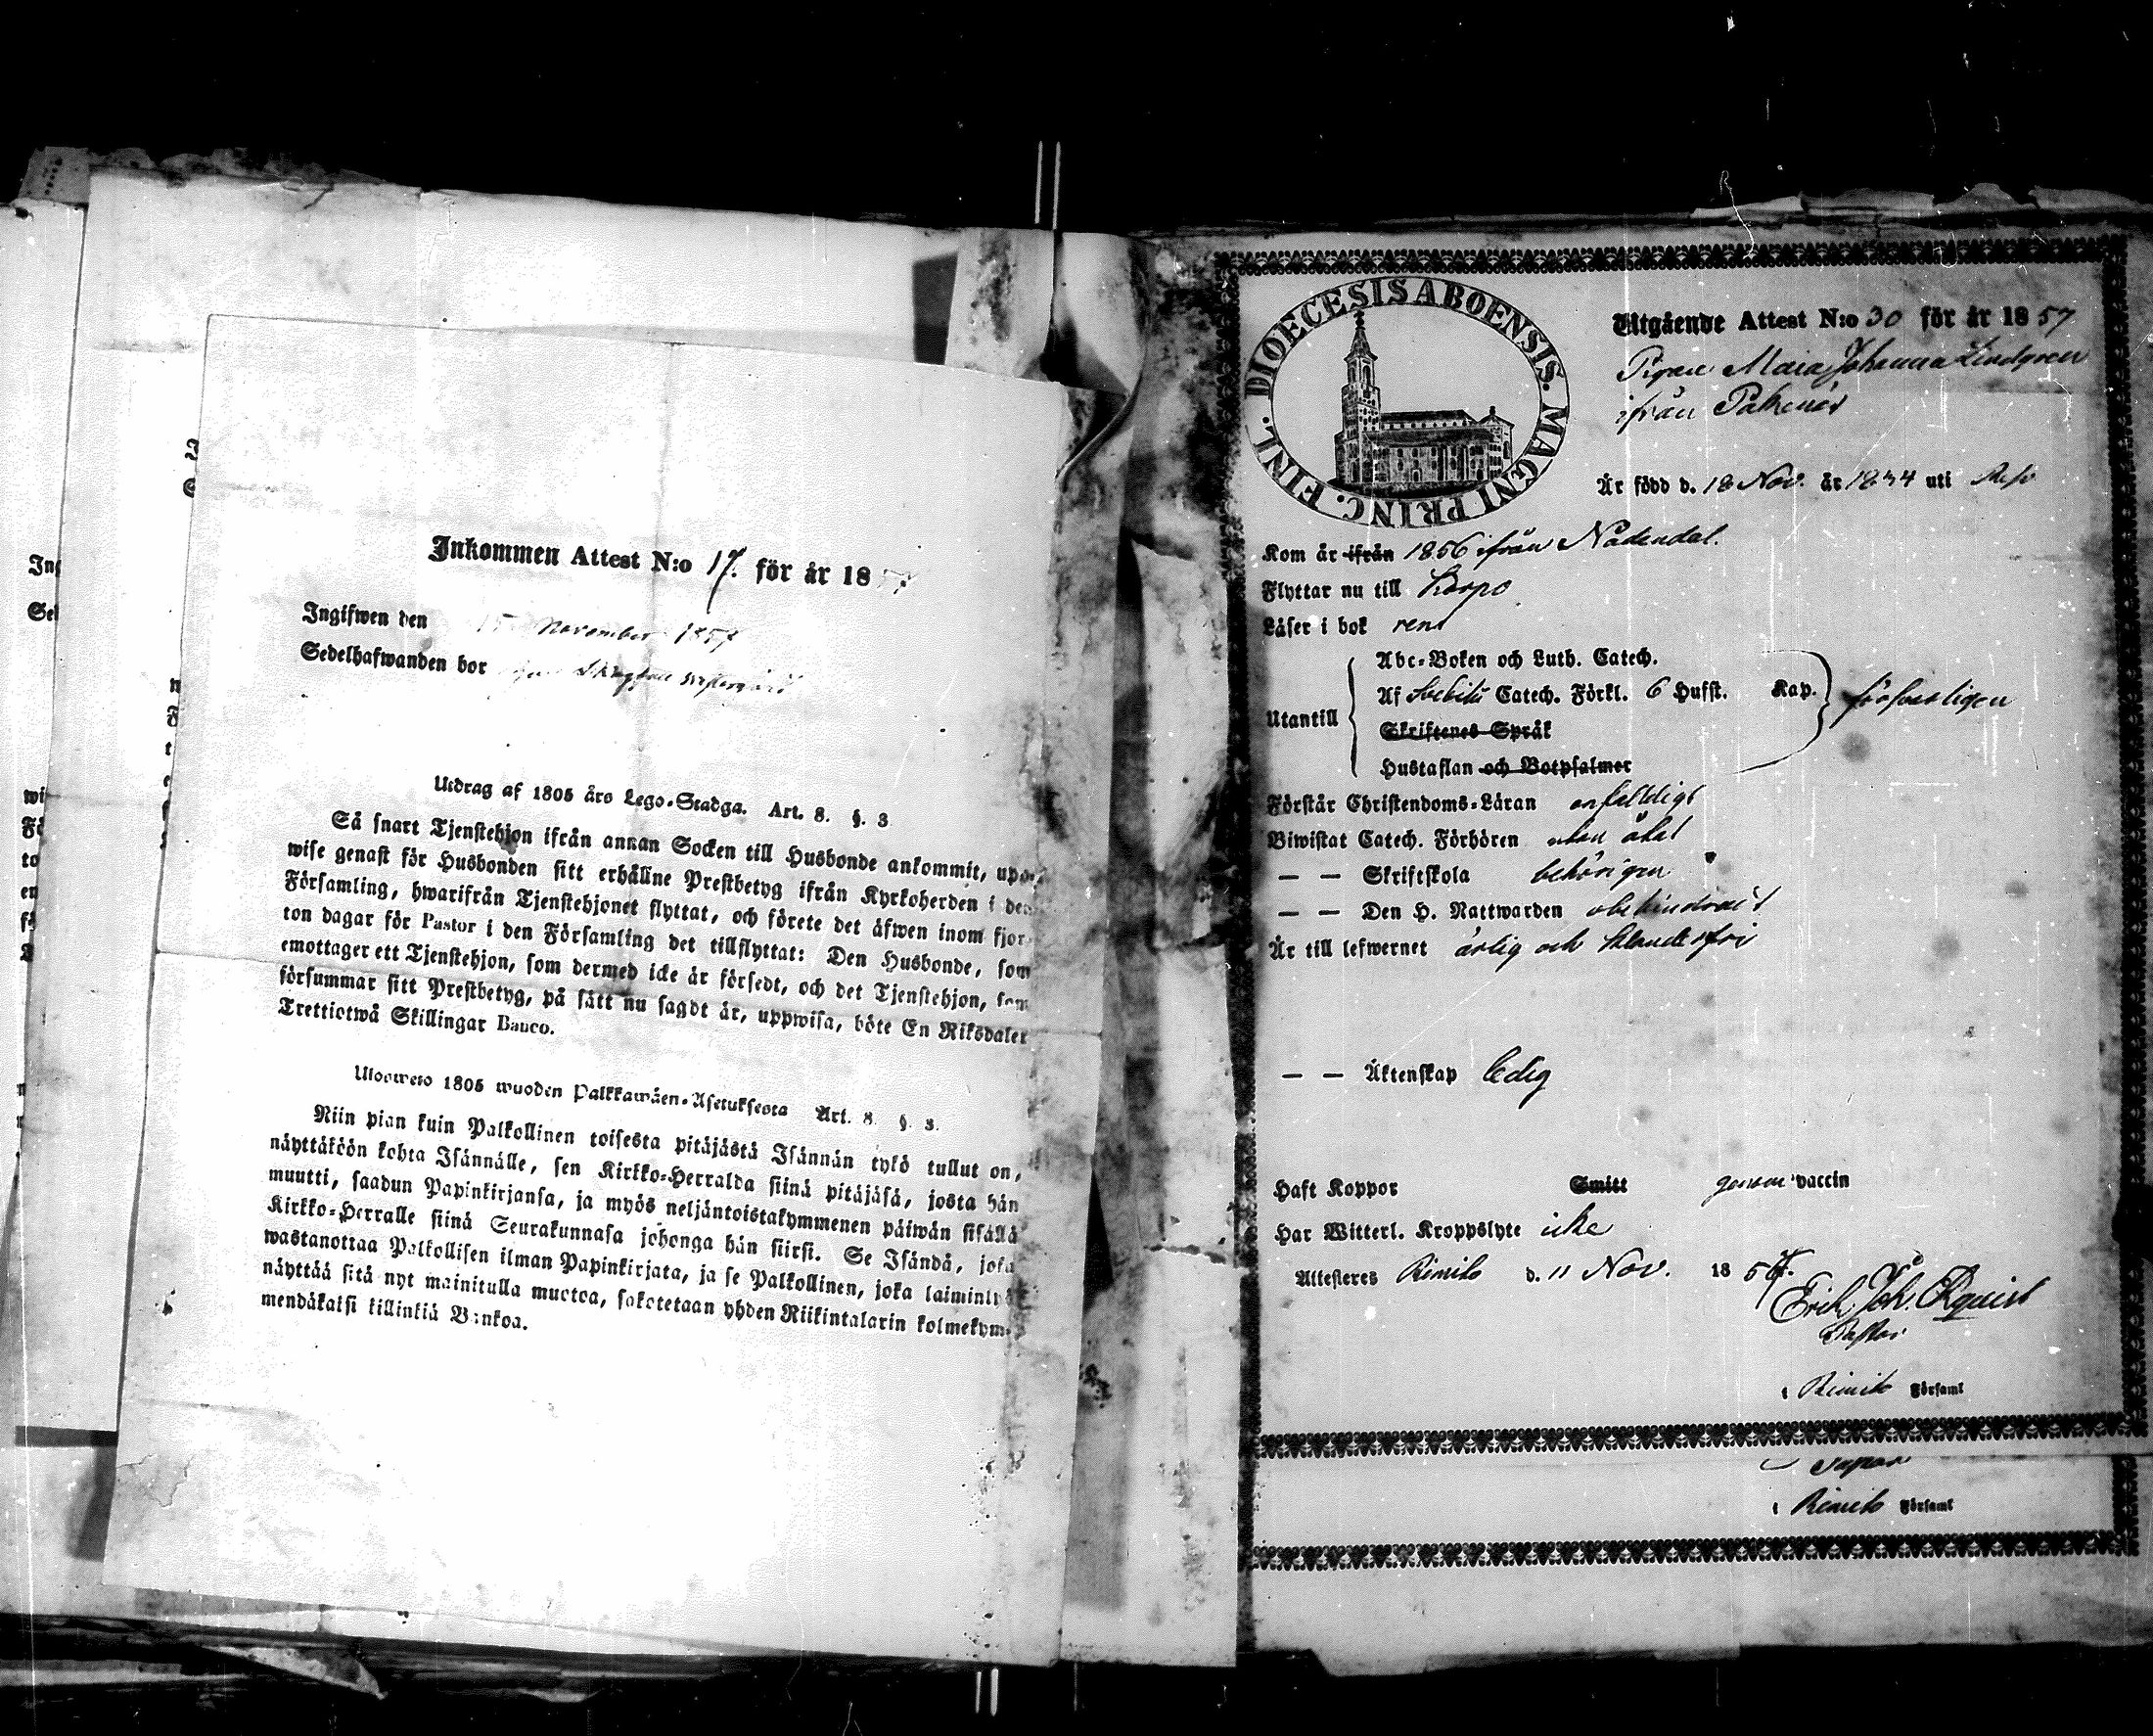 Inkommen Attest N:o 17. för år 1857.
Ingifwen den 15 November 1857
Sedelhafwanden bor
Utdrag af 1805 års Lego-Stadga. Art. 8. §. 3
Så snart Tjenstehjon ifrån annan Socken till Husbonde ankommit, upp-
wise genast för Husbonden sitt erhållne Prestbetyg ifrån Kyrkoherden i den
Församling, hwarifrån Tjenstehjonet flyttat, och förete det äfwen inom fjor-
ton dagar för Pastor i den Församling det tillflyttat: Den Husbonde, som
emottager ett Tjenstehjon, som dermed icke är försedt, och det Tjenstehjon, som
försummar sitt Prestbetyg, på sätt nu sagdt är, uppwisa, böte En Riksdaler
Trettiotwå Skillingar Banco.
Ulosweto 1805 wuoden Palkkawäen-Asetuksesta Art. 8. §. 3.
Niin pian kuin Palkollinen toisesta pitäjästä Isännän tykö tullut on,
näyttäköön kohta Isännälle, sen Kirkko-Herralda siinä pitäjäsä, josta hän
muutti, saadun Papinkirjansa, ja myös neljäntoistakymmenen päiwän sisällä
Kirkko-Herralle siinä Seurakunnasa johonga hän siirsi. Se Isändä, joka
wastanottaa Palkollisen ilman Papinkirjata, ja se Palkollinen, joka laiminlyö
näyttää sitä nyt mainitulla muotoa, sakotetaan yhden Riikintalarin kolmekym-
mendäkaksi killinkiä Bankoa.
DIOECESIS ABOENSIS. MAGNI PRINC. FINL.
Utgående Attest N:o 30 för år 1857
Pigan Maria Johanna Lindgren
ifrån Pakenäs
Är född d. 18 Nov. år 1834 uti Reso
Kom år ifrån 1856 ifrån Nådendal.
Flyttar nu till Korpo
Läser i bok rent
Utantill
Abc-Boken och Luth. Catech.
Af Svebilii Catech. Förkl. 6 Hufst. Kap.
försvarligen
Skriftenes Språk
Hustaflan och Botpsalmer
Förstår Christendoms-Läran enfaldigt
Biwistat Catech. Förhören utan åtal
— — Skriftskola behörigen
— — Den H. Nattwarden obehindradt
Är till lefwernet ärlig och klanderfri
— — Äktenskap ledig
Haft Koppor Smitt genom vaccin
Har Witterl. Kroppslyte icke
Attesteres Rimito d. 11 Nov. 1857.
Erich Joh. Öquist
Pastor
i Rimito Församl
i Rimito Församl